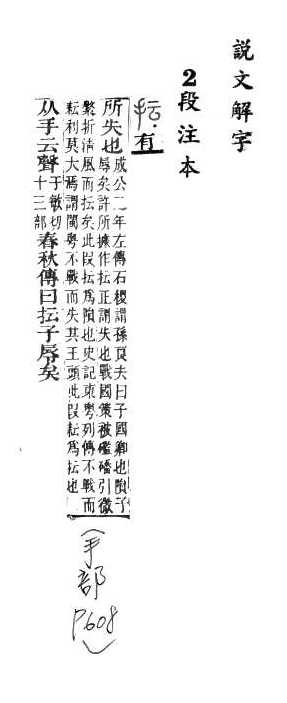 説文解字
2段注本
抎·有
所失也成公二年左傳石稷謂孫良夫曰子國卿也隕子
辱矣許所據作抎正謂失也戰國策被礛磻引微
繁折清風而抎矣此叚抎爲隕也史記東粤列傳不戰而
耘利莫大焉謂閩粤不戰而失其王頭此叚耘爲抎也
从手云聲于敏切十三部春秋傳曰抎子辱矣
(手部P608)